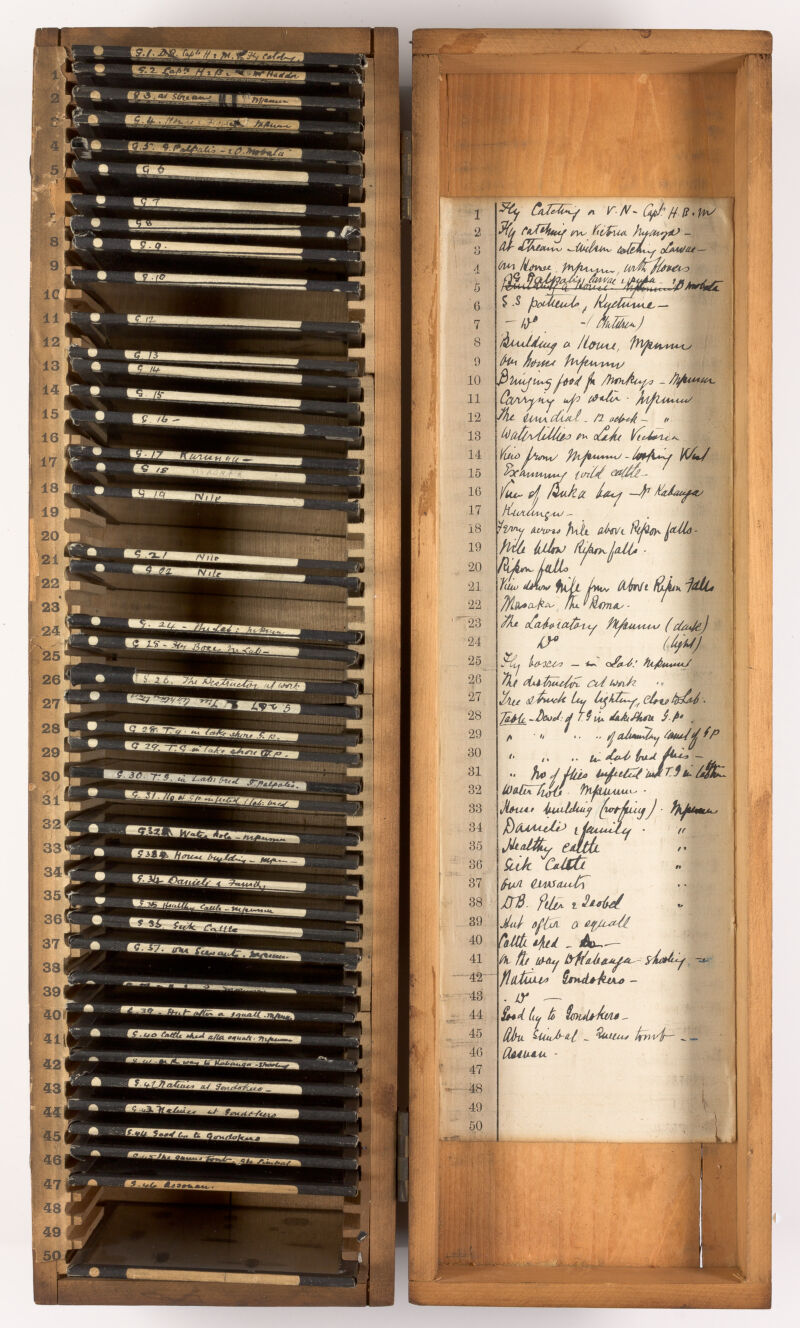 G.1. D.B. Capt H.
G.2 Capt H. B.
G 3. at Stream Mpumu
G.4. House Mpumu
G.5. G. Palpalis - & D. Mobata
G 6
G 7
G8
G.9.
G.10
G 12
G 13
G 14
G 15
G. 16 -
G. 17 Kurungu -
G 18
G 19 Nile
G. 21 Nile
G 22 Nile
G. 24 - The Lab: Mpumu
G 25 - Fly Boxes in Lab -
G. 26. The Destructor at work
G 27
G 28. T.g. in lake shore G.p.
G 29. T.G in lake shore G.P.
G. 30. T.G. in Lab: bred G. Palpalis.
G. 31. No of G.P. infected Lab. bred
G 32 Water hole - Mpumu
G 33 House building - Mpumu
G. 34 Daniele & Family
G. 35 Healthy Cattle - Mpumu
G 36. Sick Cattle
G. 37. our Servants. Mpumu
G. 39. Hut after a squall. Mpumu
G. 40 Cattle shed after squall. Mpumu
G. 41 on the way to Kabanga - shooting
G. 42 Natives at Gondokoro -
G. 43 Natives at Gondokoro
G. 44 Good bye to Gondokoro
G. 45 The queens tomb. Abu Simbal
G. 46 Assouan.
1
2
3
4
5
8
9
10
11
12
13
14
15
16
17
18
19
20
21
22
23
24
25
26
27
28
29
30
31
32
33
34
35
36
37
38
39
40
41
42
43
44
45
46
47
48
49
50
1 Fly Catching on V. N - Capt H. B. M
2 Fly catching on Victoria Nyanza -
3 At Stream - Wilson catching Larvae -
4 our House. Mpumu, with flowers
5 G. Palpalis larvae & pupa. & D mobata
6 S.S patients, Kyetume -
7 - Do - (Children)
8 Building a House, Mpumu
9 Our House Mpumu
10 Bringing food for Monkeys - Mpumu
11 Carrying up water. Mpumu
12 The sundial - 12 oclock - "
13 Waterlillies on Lake Victoria
14 View from Mpumu - looking West
15 Examining wild cattle -
16 View of Buka bay - Nr Kabanga
17 Kurungu -
18 Ferry across Nile above Ripon falls -
19 Nile below Ripon falls.
20 Ripon falls
21 View down Nile from above Ripon Falls
22 Masaka, the Boma -
23 The Laboratory Mpumu (dark)
24 Do (light)
25 Fly boxes - in Lab: Mpumu
26 The destructor at work "
27 Tree struck by lighting, close to Lab.
28 Table - Devel: of T.G in lake shore G.P.
29 " " " " of alimentary canal of G P
30 " " " " in Lab bred flies -
31 " No of flies infected with T.G in
32 Water hole. Mpumu.
33 House building (roofing). Mpumu
34 Daniele & family. "
35 Healthy cattle "
36 Sick Cattle "
37 Our servants "
38 D.B. Peter & Isobel "
39 Hut after a squall
40 Cattle shed - Do -
41 On the way to Kabanga - shooting -
42 Natives Gondokoro -
43 . Do -
44 Good bye to Gondokoro -
45 Abu Simbal - Queens tomb -
46 Assuan.
47
48
49
50